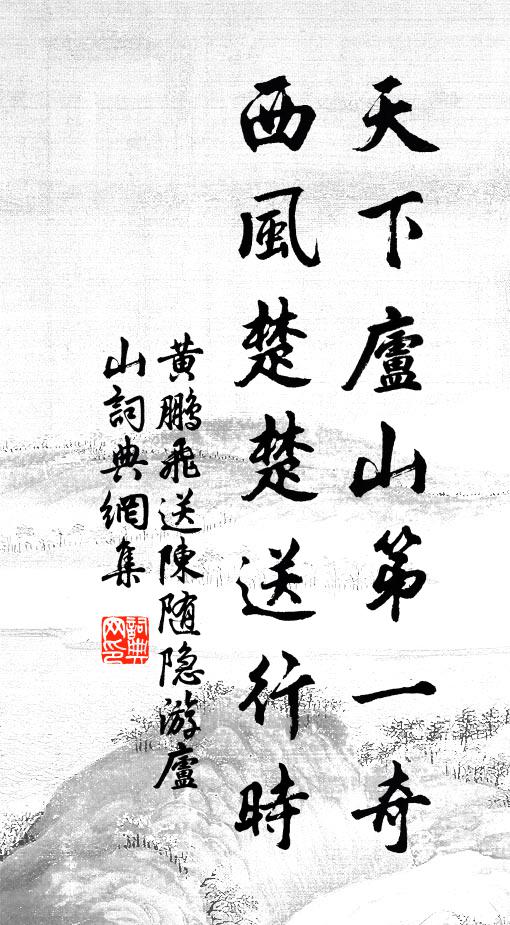 天下廬山第一奇
西風楚楚送行時
黄鵬飛送陳随隐游廬
山詞典網集
詞典网印